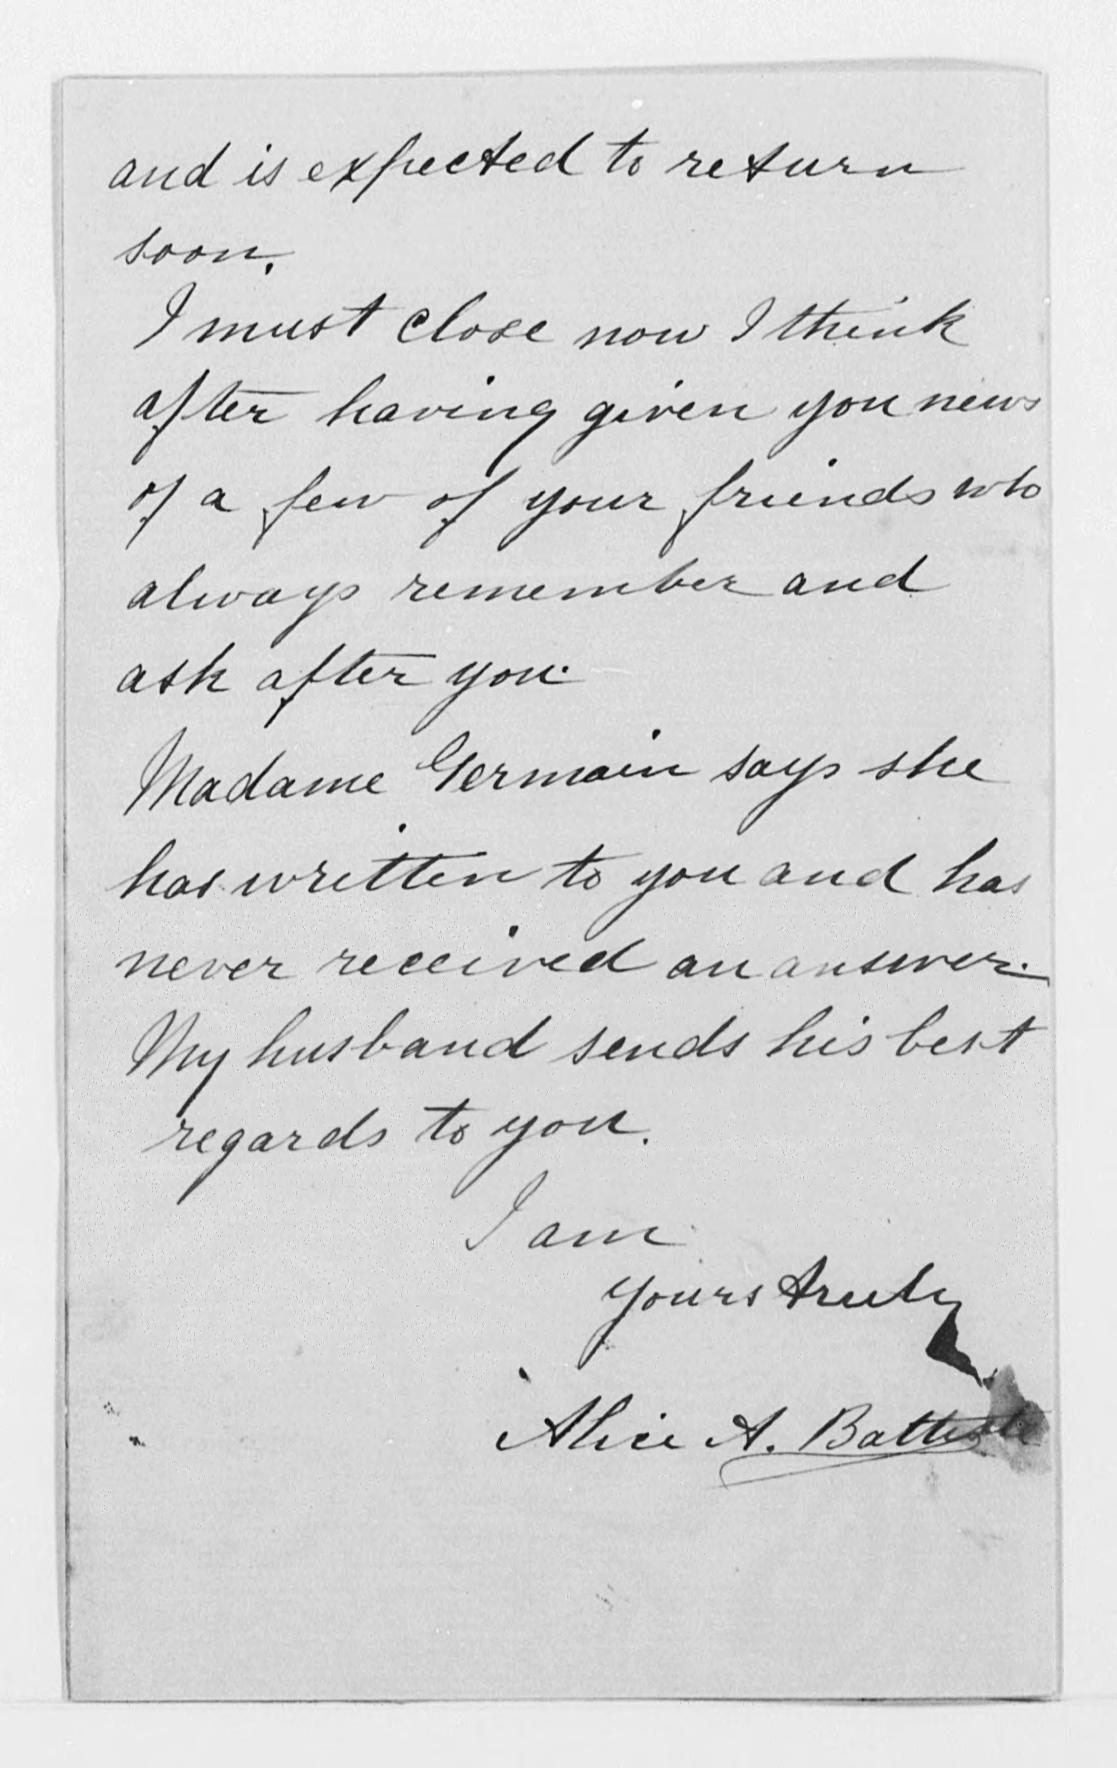 and is expected to return
soon.
I must close now I think
after having given you news
of a few of your friends who
always remember and
ask after you.
Madame Germain says she
has written to you and has
never received an answer.
My husband sends his best
regards to you.
I am
yours truly
Alice A. Battiste